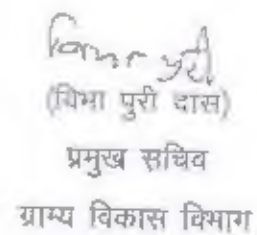 (विभा पुरी दास)
प्रमुख सचिव
ग्राम्य विकास विभाग